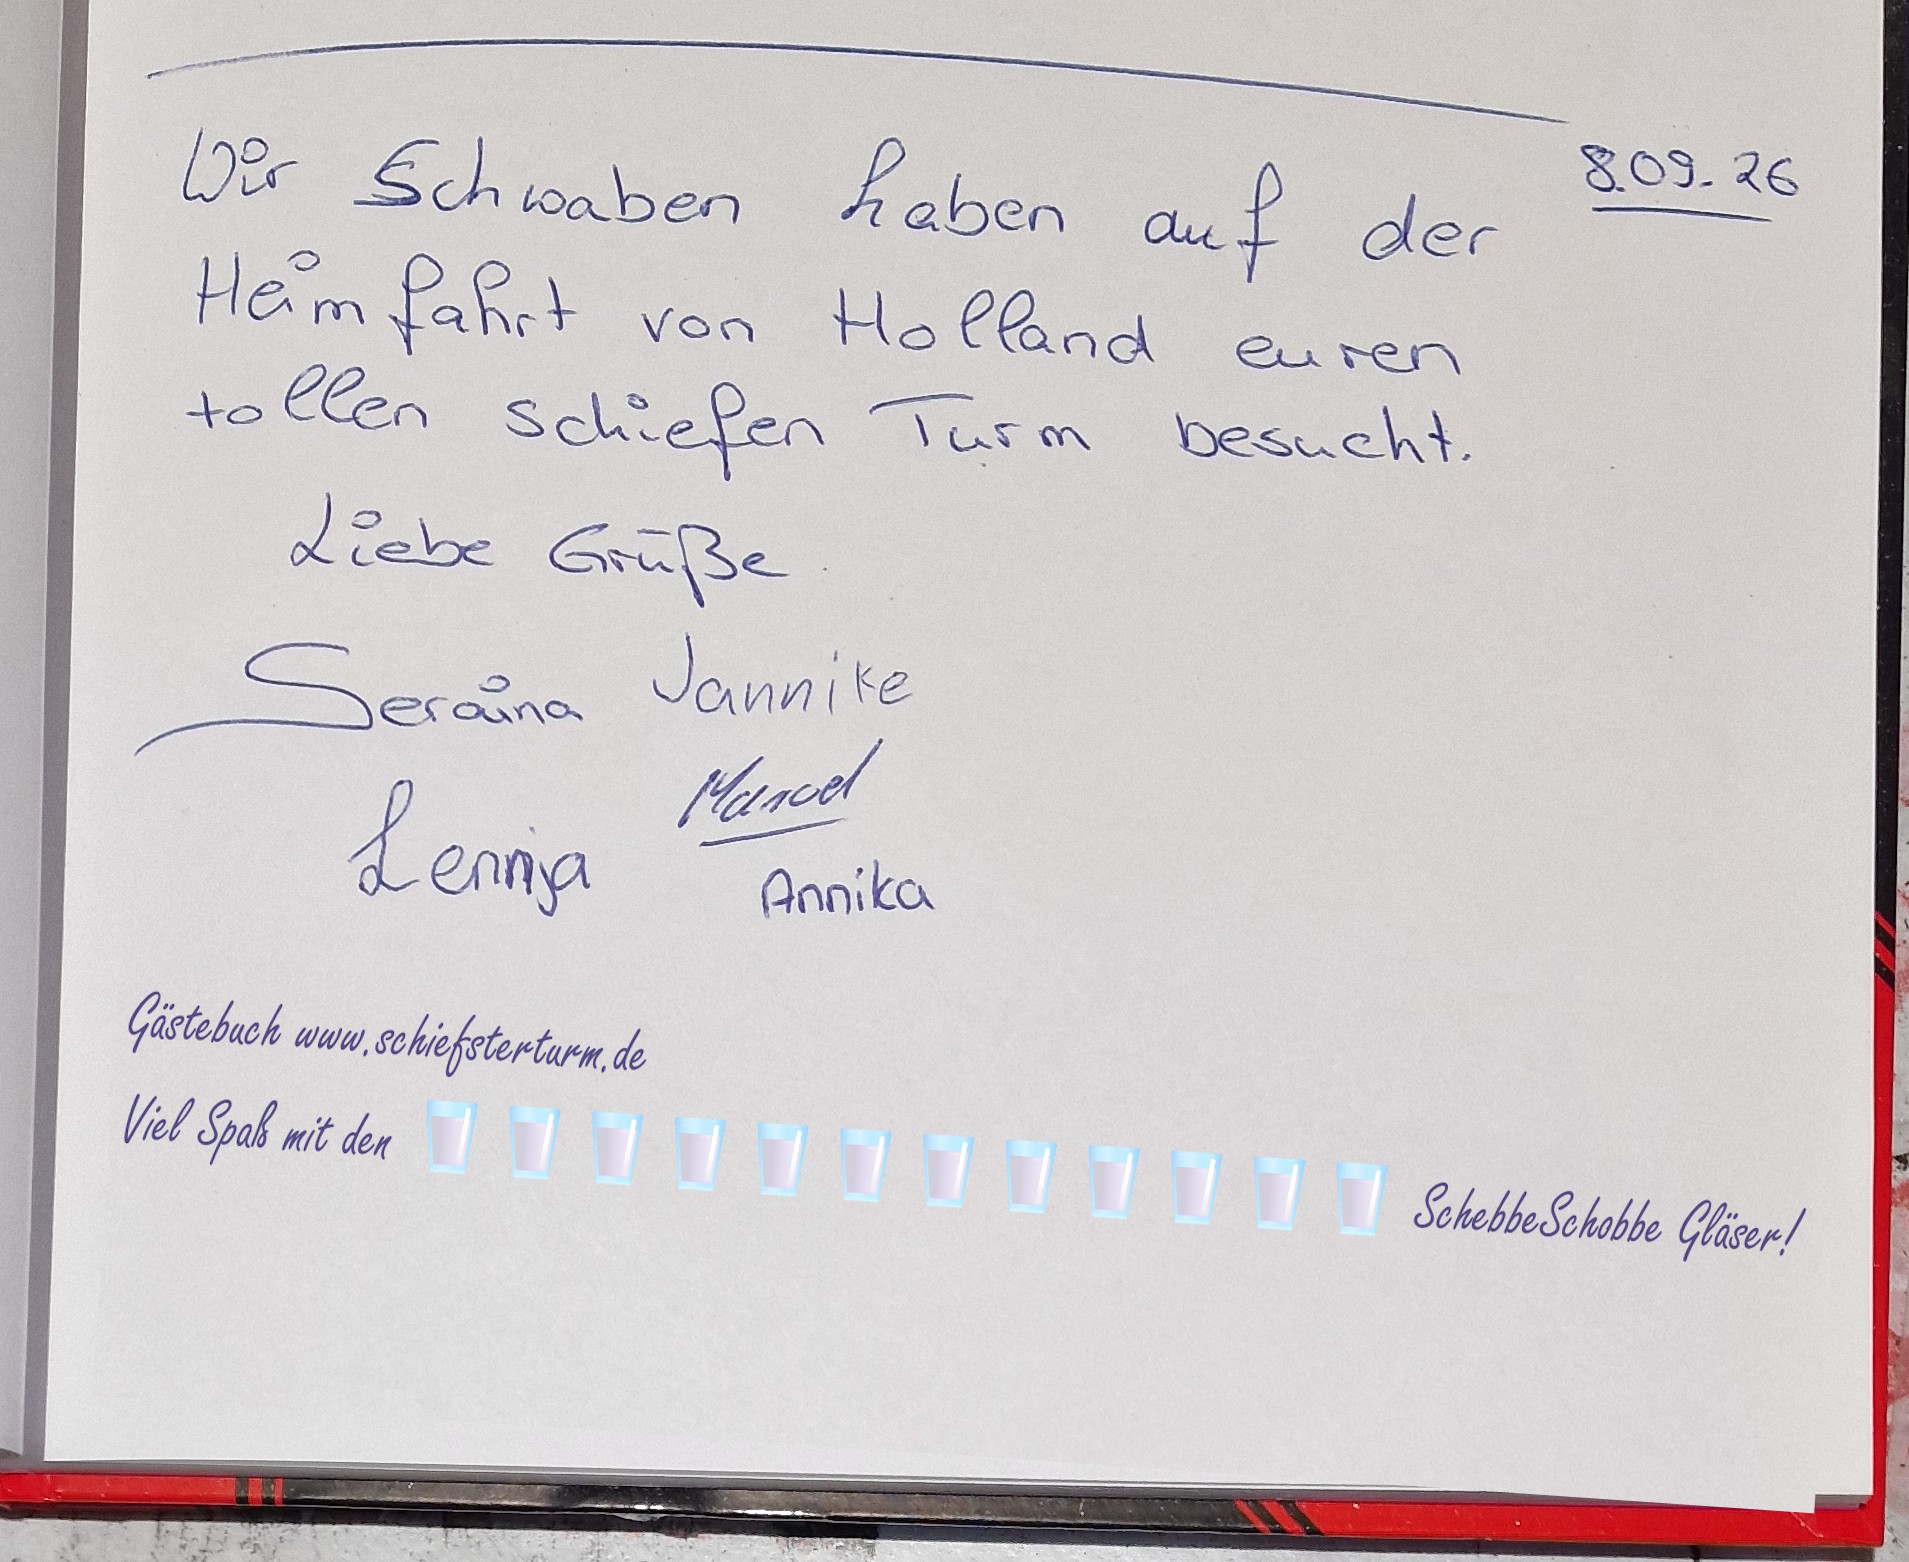 8.09.26
Wir Schwaben haben auf der
Heimfahrt von Holland euren
tollen schiefen Turm besucht.
Liebe Grüße
Seraina Jannike
Marcel
Lennja
Annika
Gästebuch www.schiefsterturm.de
Viel Spaß mit den 🥛🥛🥛🥛🥛🥛🥛🥛🥛🥛🥛🥛 SchebbeSchobbe Gläser!